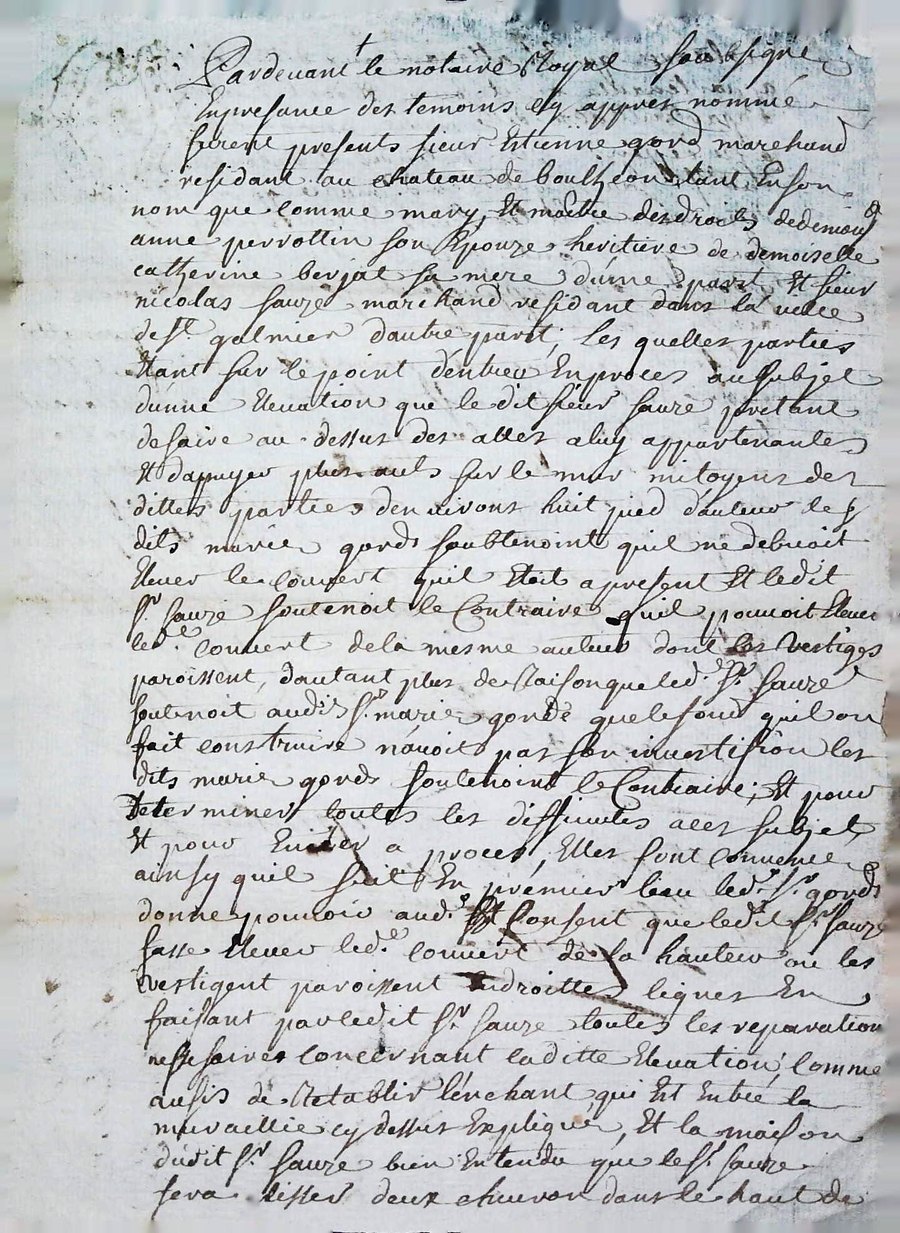 Pardevant le notaire Royal soubsigné
Enpresance des temoins cy appres nommé
furent presents sieur Estienne gord marchand
residant au chateau de tant Enson
nom que comme mary, Et maitre des droits dedemois
anne perrottin son Epouze heritiere de demoiselle
catherine berjat sa mere dúne part Et sieur
nicolas sauze marchand residant dans la ville
de st. galmier dautre part; les quelles parties
Etant sur le point déntrer Enproces au subjet
dunne Elevation que le dit sieur sauze pretant
defaire au dessus des a luy appartenantes
Et dapuyer plus aults sur le mur mitoyens des
dittes parties denvirons huit pied dauteur les
dits mariée gords soubtenoint quil ne debvoit
Elever le couvert quil Etoit apresent Et ledit
sr. sauze soutenoit le Contraire quil pouvoit Elever
led. couvert dela mesme auteur dont les Vestiges
paroissent, dautant plus de Raison que led. sr. sauze
soutenoit audit sr. marié gorde que le fond quil on
fait construire návoit pas son investision les
dits marie gords soutenoint le Contraire; Et pour
determiner toutes les difficutes acer subjet
Et pour Eviter a proces, Elles sont convenue
ainsy quil suit En premier lieu led. sr. gords
donne pouvoir aud. Et Consent que ledit sr. sauze
fasse Elever led. couvert de la hauteur ou les
vestigent paroissent Endroittes lignes En
faisant par ledit sr. sauze toutes les reparation
nessesaires concernant laditte Elevation, comme
ausis de Retablir lénchant qui Est Entre la
muraillie cy dessus Expliquée, Et la maison
dudit sr. sauze bien Entendu que le sr. sauze
sera lisser deux chevron dans le haut de